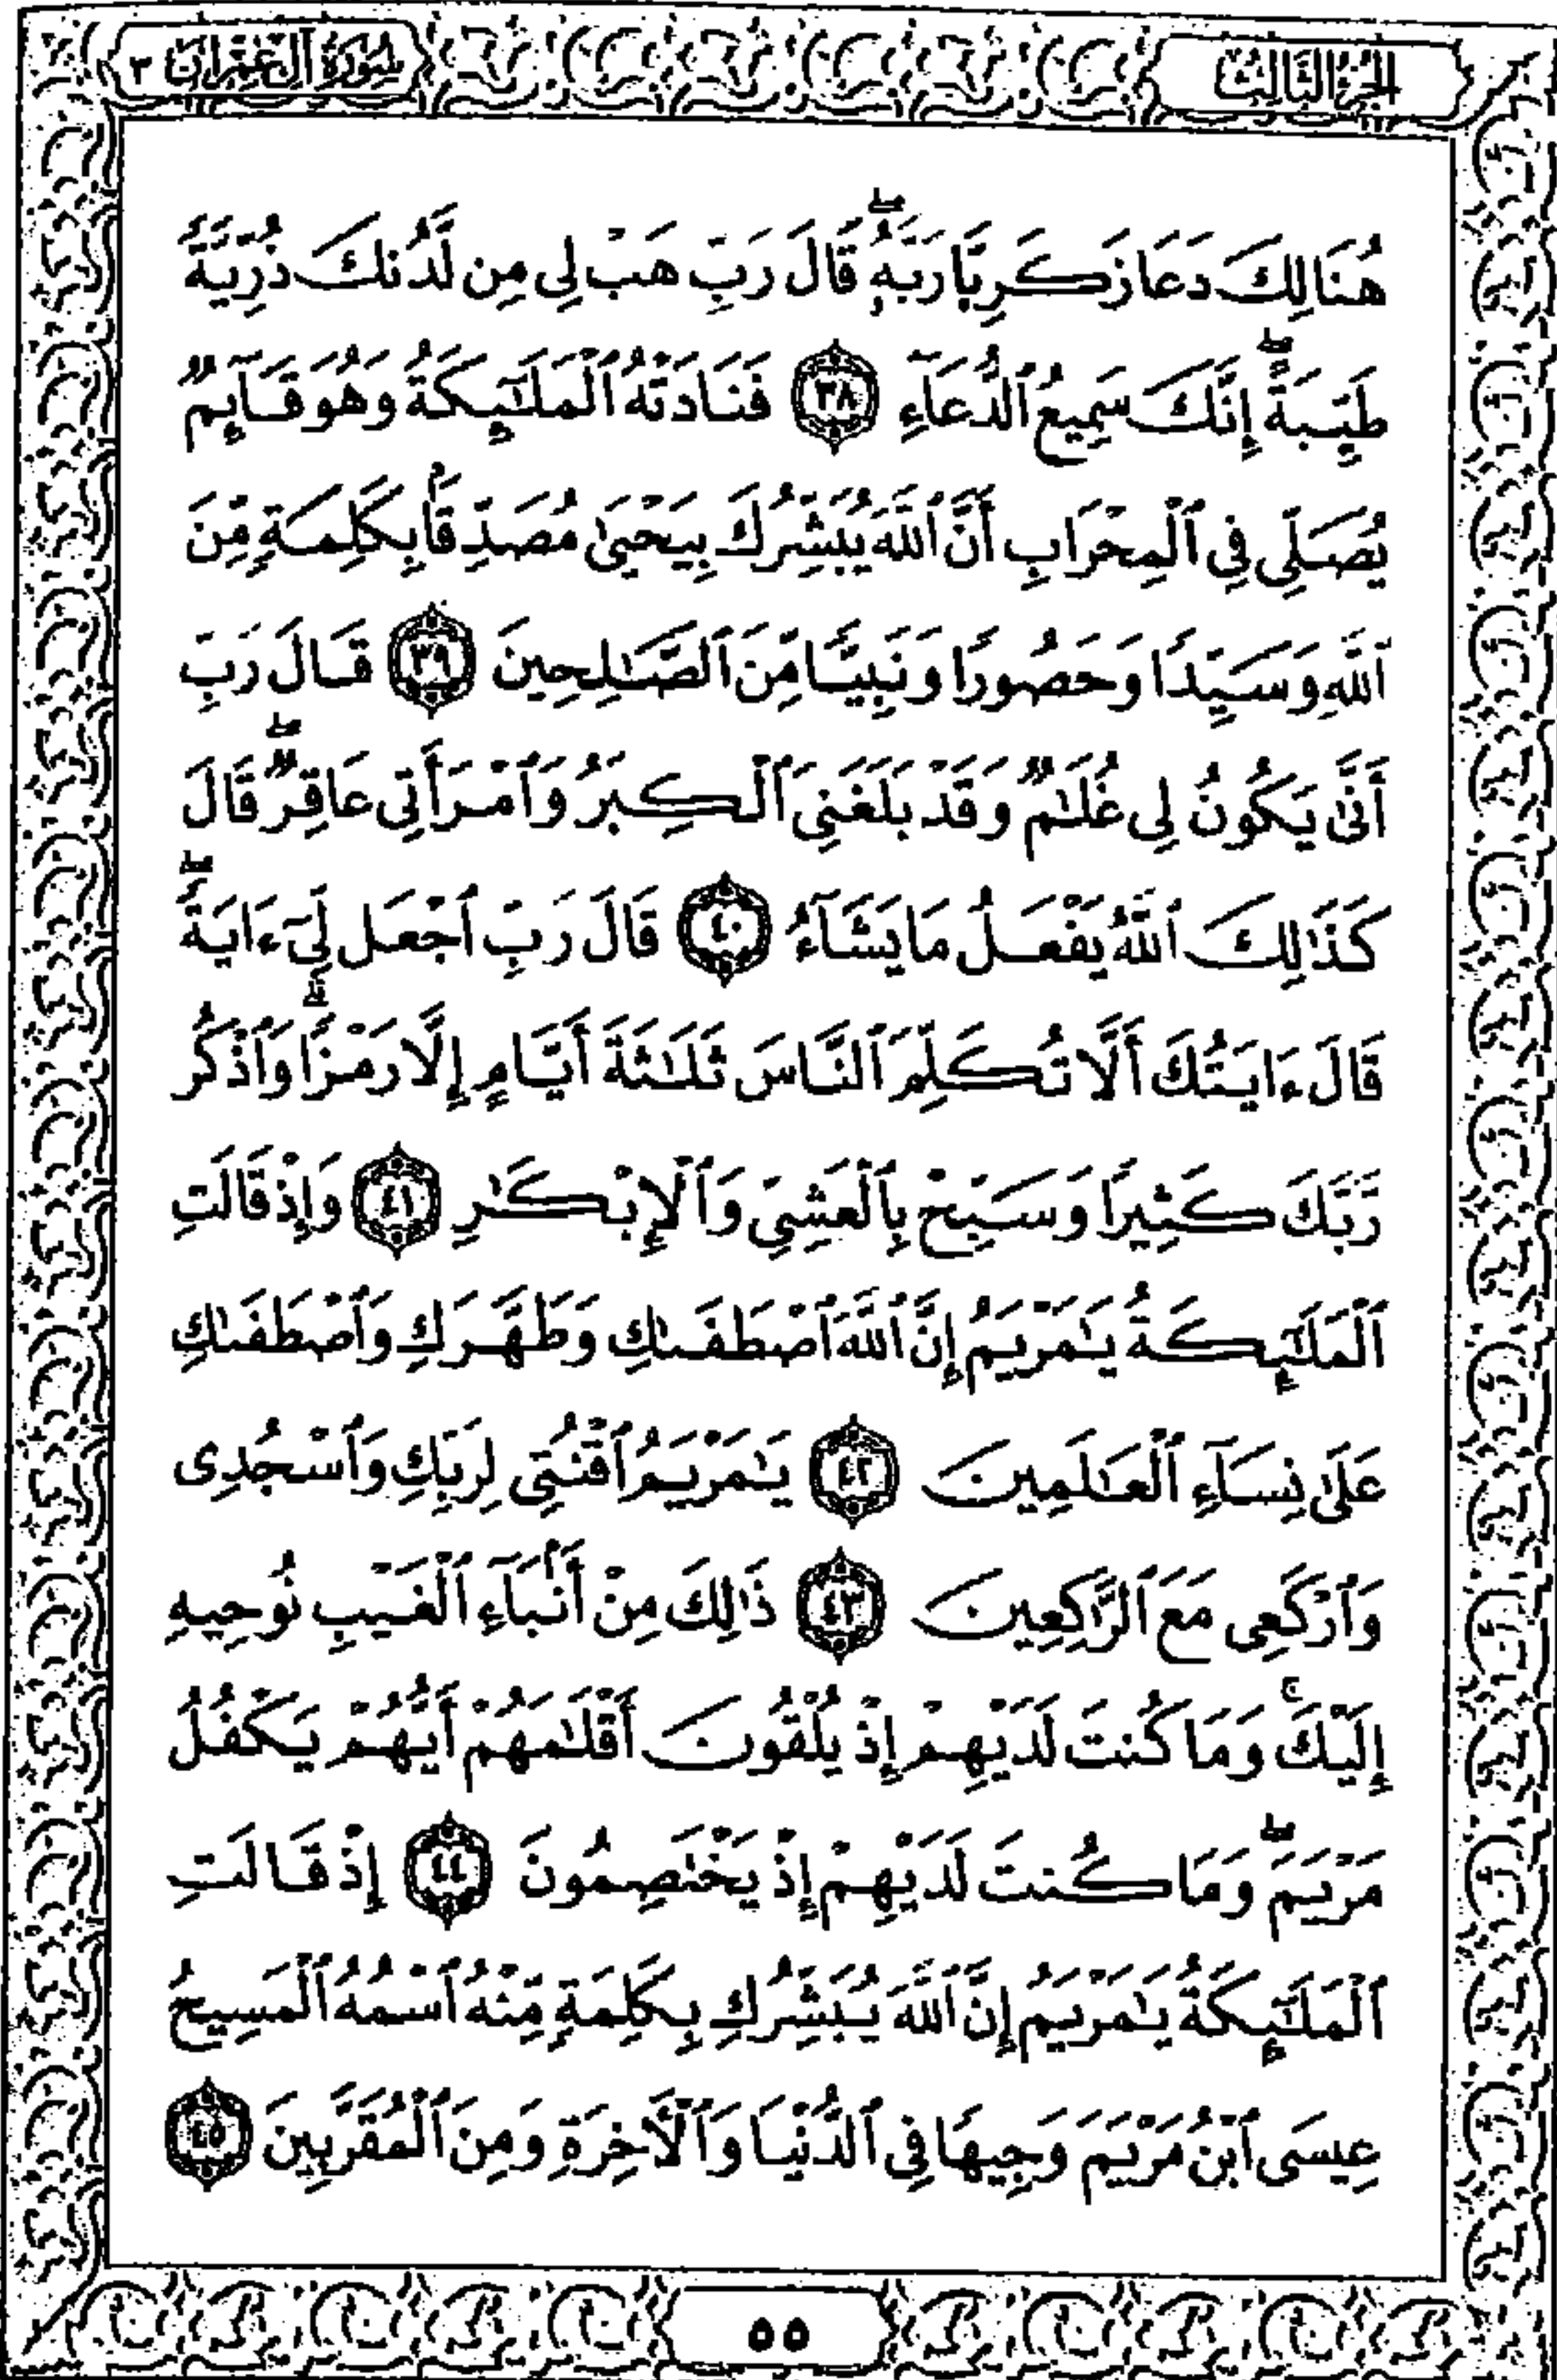 الجزء الثالث
سورة آل عمران ٣
هُنَالِكَ دَعَا زَكَرِيَّا رَبَّهُۥۖ قَالَ رَبِّ هَبْ لِى مِن لَّدُنكَ ذُرِّيَّةً
طَيِّبَةًۖ إِنَّكَ سَمِيعُ ٱلدُّعَآءِ ٣٨ فَنَادَتْهُ ٱلْمَلَٰٓئِكَةُ وَهُوَ قَآئِمٌ
يُصَلِّى فِى ٱلْمِحْرَابِ أَنَّ ٱللَّهَ يُبَشِّرُكَ بِيَحْيَىٰ مُصَدِّقًۢا بِكَلِمَةٍ مِّنَ
ٱللَّهِ وَسَيِّدًا وَحَصُورًا وَنَبِيًّا مِّنَ ٱلصَّٰلِحِينَ ٣٩ قَالَ رَبِّ
أَنَّىٰ يَكُونُ لِى غُلَٰمٌ وَقَدْ بَلَغَنِىَ ٱلْكِبَرُ وَٱمْرَأَتِى عَاقِرٌۖ قَالَ
كَذَٰلِكَ ٱللَّهُ يَفْعَلُ مَا يَشَآءُ ٤٠ قَالَ رَبِّ ٱجْعَل لِّىٓ ءَايَةًۖ
قَالَ ءَايَتُكَ أَلَّا تُكَلِّمَ ٱلنَّاسَ ثَلَٰثَةَ أَيَّامٍ إِلَّا رَمْزًاۗ وَٱذْكُر
رَّبَّكَ كَثِيرًا وَسَبِّحْ بِٱلْعَشِىِّ وَٱلْإِبْكَٰرِ ٤١ وَإِذْ قَالَتِ
ٱلْمَلَٰٓئِكَةُ يَٰمَرْيَمُ إِنَّ ٱللَّهَ ٱصْطَفَىٰكِ وَطَهَّرَكِ وَٱصْطَفَىٰكِ
عَلَىٰ نِسَآءِ ٱلْعَٰلَمِينَ ٤٢ يَٰمَرْيَمُ ٱقْنُتِى لِرَبِّكِ وَٱسْجُدِى
وَٱرْكَعِى مَعَ ٱلرَّٰكِعِينَ ٤٣ ذَٰلِكَ مِنْ أَنۢبَآءِ ٱلْغَيْبِ نُوحِيهِ
إِلَيْكَۚ وَمَا كُنتَ لَدَيْهِمْ إِذْ يُلْقُونَ أَقْلَٰمَهُمْ أَيُّهُمْ يَكْفُلُ
مَرْيَمَۖ وَمَا كُنتَ لَدَيْهِمْ إِذْ يَخْتَصِمُونَ ٤٤ إِذْ قَالَتِ
ٱلْمَلَٰٓئِكَةُ يَٰمَرْيَمُ إِنَّ ٱللَّهَ يُبَشِّرُكِ بِكَلِمَةٍ مِّنْهُ ٱسْمُهُ ٱلْمَسِيحُ
عِيسَى ٱبْنُ مَرْيَمَ وَجِيهًا فِى ٱلدُّنْيَا وَٱلْءَاخِرَةِ وَمِنَ ٱلْمُقَرَّبِينَ ٤٥
٥٥